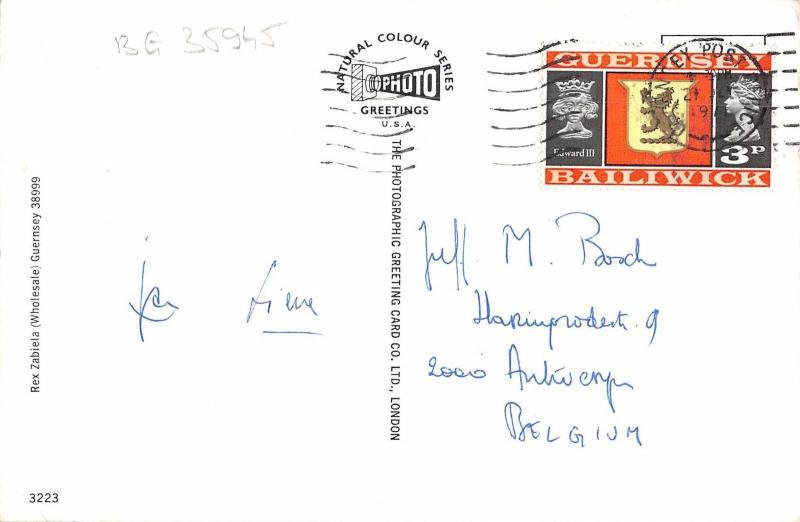 BG 35945
NATURAL COLOUR SERIES
PHOTO
GREETINGS
U.S.A.
GUERNSEY
Edward III
3p
BAILIWICK
POST
1971
THE PHOTOGRAPHIC GREETING CARD CO. LTD., LONDON
Rex Zabiela (Wholesale) Guernsey 38999
Lieve
Juff. M. Bosch
9
2000 Antwerpen
BELGIUM
3223